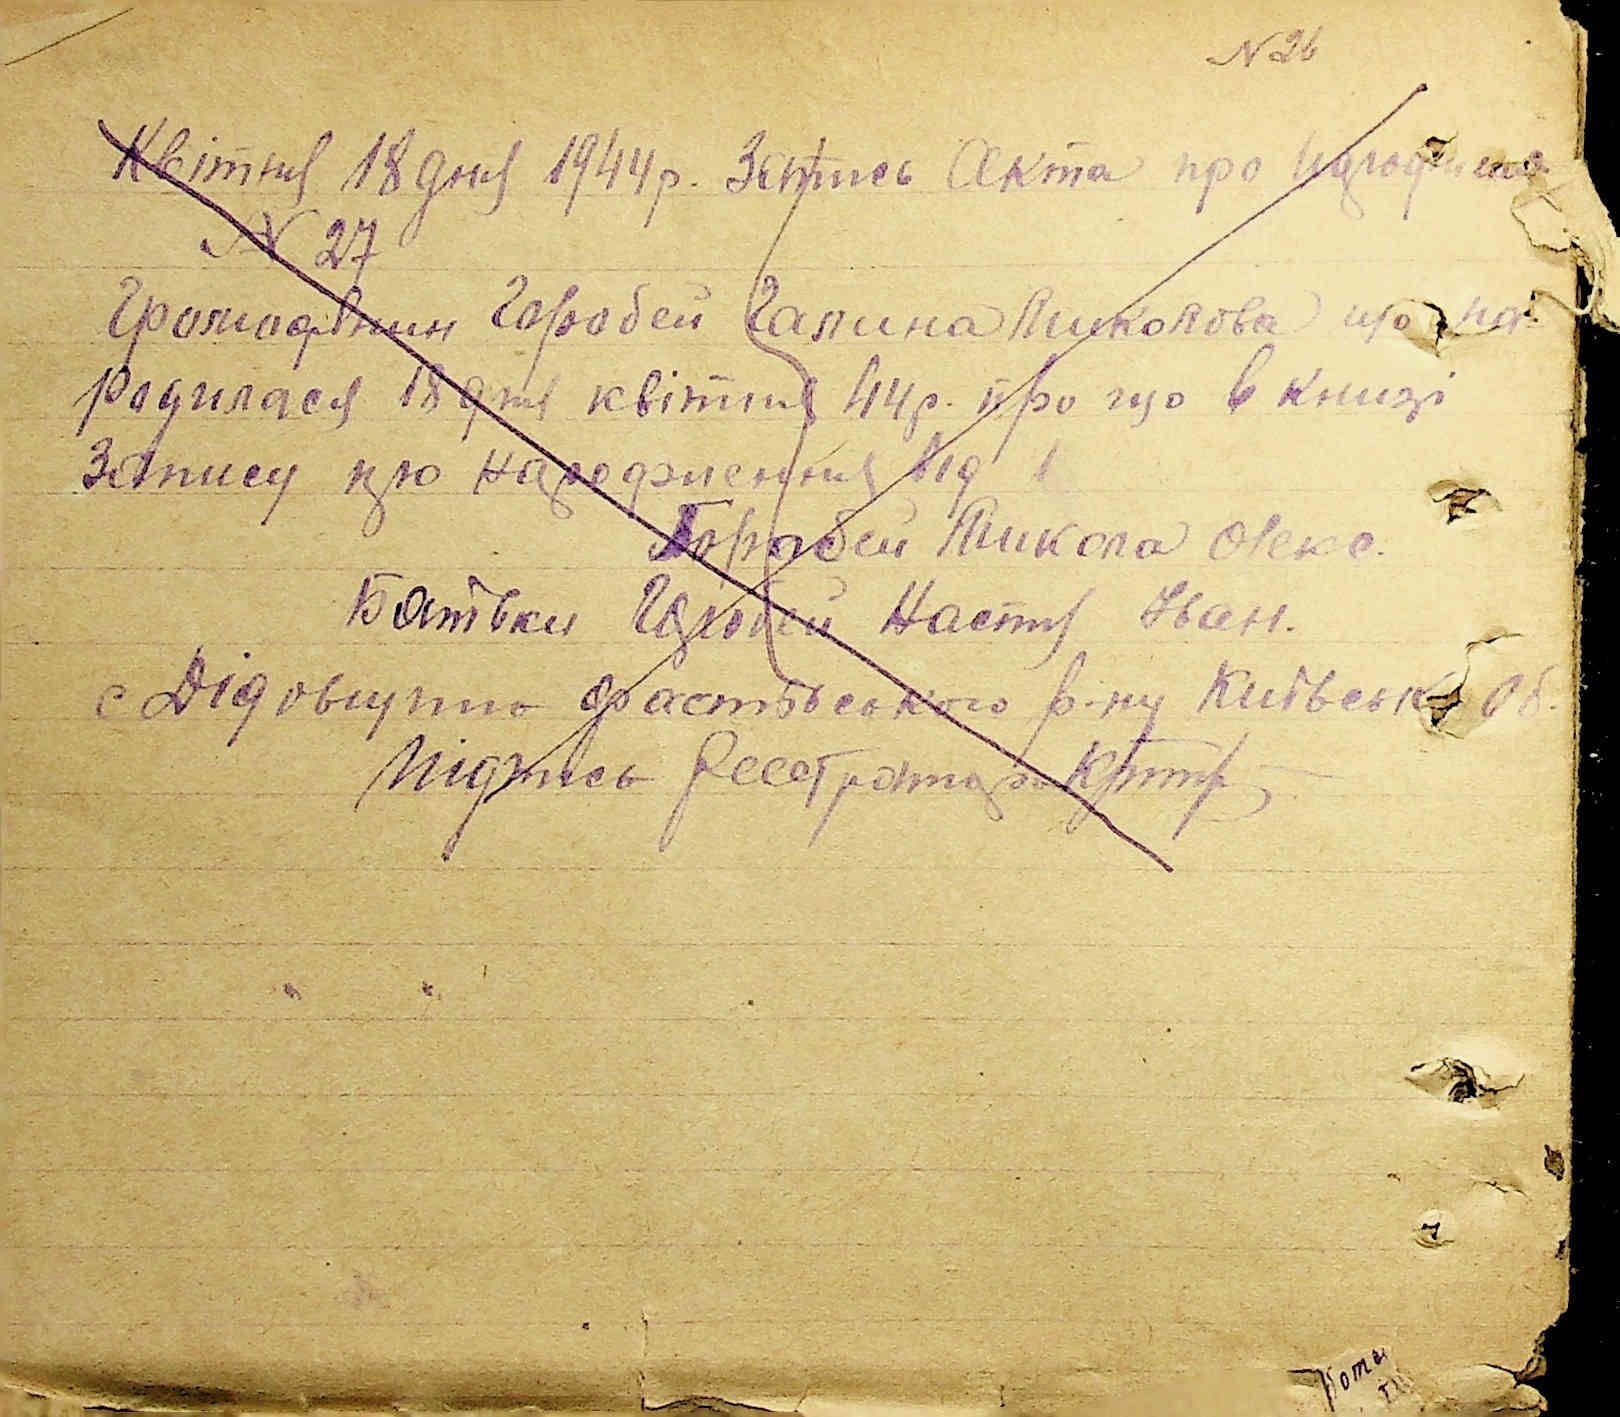 N 26
Квітня 18 дня 1944р. Запись Акта про
N 27
Громодянин Горобей Галина Миколова що на
родилася 18 дня квітня 44р. про що в книзі
Запису про народження від 1
Горобей Микола Олекс.
Батьки Горобей Настя Іван.
с Дідовщино Фастівського р-ну Київськ Об.
Підпись Реєстратора